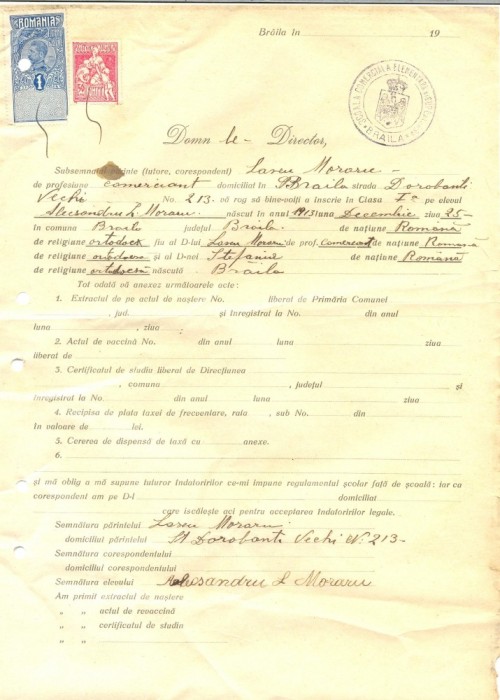 ROMANIA
1
Brăila în 19
ȘCOALA COMERCIALĂ ELEMENTARĂ
BRAILA
Domnule Director,
Subsemnatul părinte (tutore, corespondent) Lascu Moraru
de profesiune comerciant domiciliat în Braila strada Dorobanti
Vechi No. 213. vă rog să bine-voiți a înscrie în Clasa I c pe elevul
Alecsandru L. Moraru născut în anul 1913 luna Decembrie ziua 25-
în comuna Braila județul Braila de națiune Română
de religiune ortodocă fiu al D-lui Lascu Moraru de prof. comerciant de națiune Română
de religiune ortodocsa și al D-nei Stefania de națiune Română
de religiune ortodocsă născută Brăila
Tot odată vă anexez următoarele acte:
1. Extractul de pe actul de naștere No. liberat de Primăria Comunei
, jud. și înregistrat la No. din anul
luna , ziua
2. Actul de vaccină No. din anul luna ziua
liberat de
3. Certificatul de studiu liberat de Direcțiunea
, comuna , județul și
înregistrat la No. din anul luna ziua
4. Recipisa de plata taxei de frecventare, rata , sub No. din
în valoare de lei.
5. Cererea de dispensă de taxă cu anexe.
6.
și mă oblig a mă supune tuturor îndatoririlor ce-mi impune regulamentul școlar față de școală: iar cu
corespondent am pe D-l domiciliat
care iscălește aci pentru acceptarea îndatoririlor legale.
Semnătura părintelui Lascu Moraru.
domiciliul părintelui St Dorobanti Vechi No. 213-
Semnătura corespondentului
domiciliul corespondentului
Semnătura elevului Alecsandru L Moraru
Am primit extractul de naștere
„ „ actul de revaccină
„ „ certificatul de studin
„ „